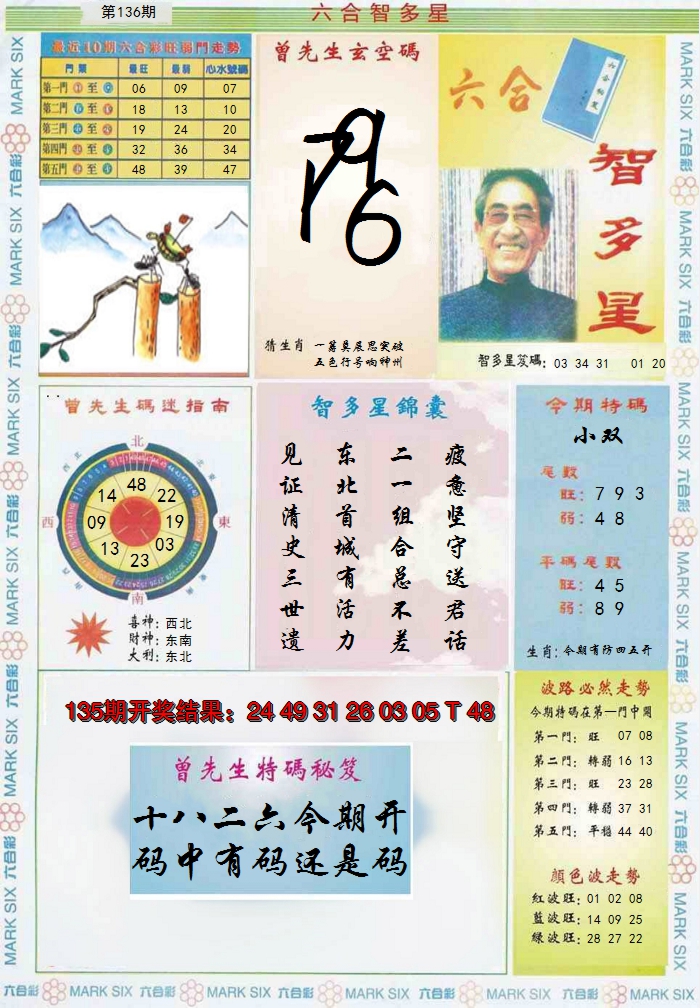 第136期
六合智多星
最近10期六合彩旺弱門走勢
門類 最旺 最弱 心水號碼
第一門 至 06 09 07
第二門 至 18 13 10
第三門 至 19 24 20
第四門 至 32 36 34
第五門 至 48 39 47
曾先生玄空碼
猜生肖 一籌莫展思突破
五色行号响神州
六合
六合秘笈
智多星
智多星笈碼: 03 34 31 01 20
曾先生碼迷指南
北
西
東
南
48
22
19
03
23
13
09
14
喜神: 西北
財神: 东南
大利: 东北
智多星錦囊
疲惫坚守送君话
二一组合总不差
东北首城有活力
见证清史三世遗
今期特碼
小双
尾數
旺: 7 9 3
弱: 4 8
平碼尾數
旺: 4 5
弱: 8 9
生肖: 今期有防四五开
135期开奖结果: 24 49 31 26 03 05 T 48
曾先生特碼秘笈
十八二六今期开
码中有码还是码
波路必然走勢
今期特碼在第一門中開
第一門: 旺 07 08
第二門: 轉弱 16 13
第三門: 旺 23 28
第四門: 轉弱 37 31
第五門: 平穩 44 40
顏色波走勢
紅波旺: 01 02 08
藍波旺: 14 09 25
綠波旺: 28 27 22
MARK SIX 六合彩